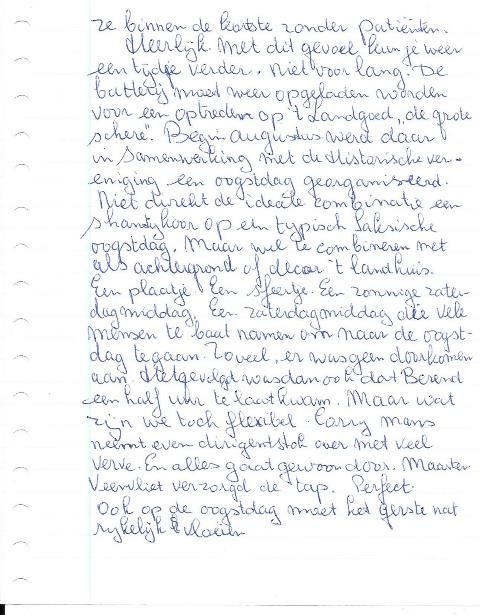 ze binnen de kortste zonder patiënten.
Heerlijk. Met dit gevoel kun je weer
een tijdje verder. Niet voor lang. De
batterij moet weer opgeladen worden
voor een optreden op 't Landgoed "de grote
schere". Begin augustus werd daar
in samenwerking met de Historische ver-
eniging een oogstdag georganiseerd.
Niet direkt de ideale combinatie een
shantykoor op een typisch Salesische
oogstdag. Maar wel te combineren met
als achtergrond of decor 't landhuis.
Een plaatje. Een sfeertje. Een zonnige zater-
dagmiddag. Een zaterdagmiddag die vele
mensen te baat namen om naar de oogst-
dag te gaan. Zoveel, er was geen doorkomen
aan. Het gevolg was dan ook dat Berend
een half uur te laat kwam. Maar wat
zijn we toch flexibel. Corry mans
neemt even dirigentstok over met veel
verve. En alles gaat gewoon door. Maarten
Veenvliet verzorgd de tap. Perfect.
Ook op de oogstdag moet het gerste nat
rijkelijk vloeien